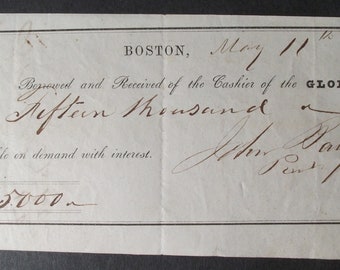 BOSTON, May 11th
Borrowed and Received of the Cashier of the GLO
Fifteen thousand
on demand with interest.
John
5000